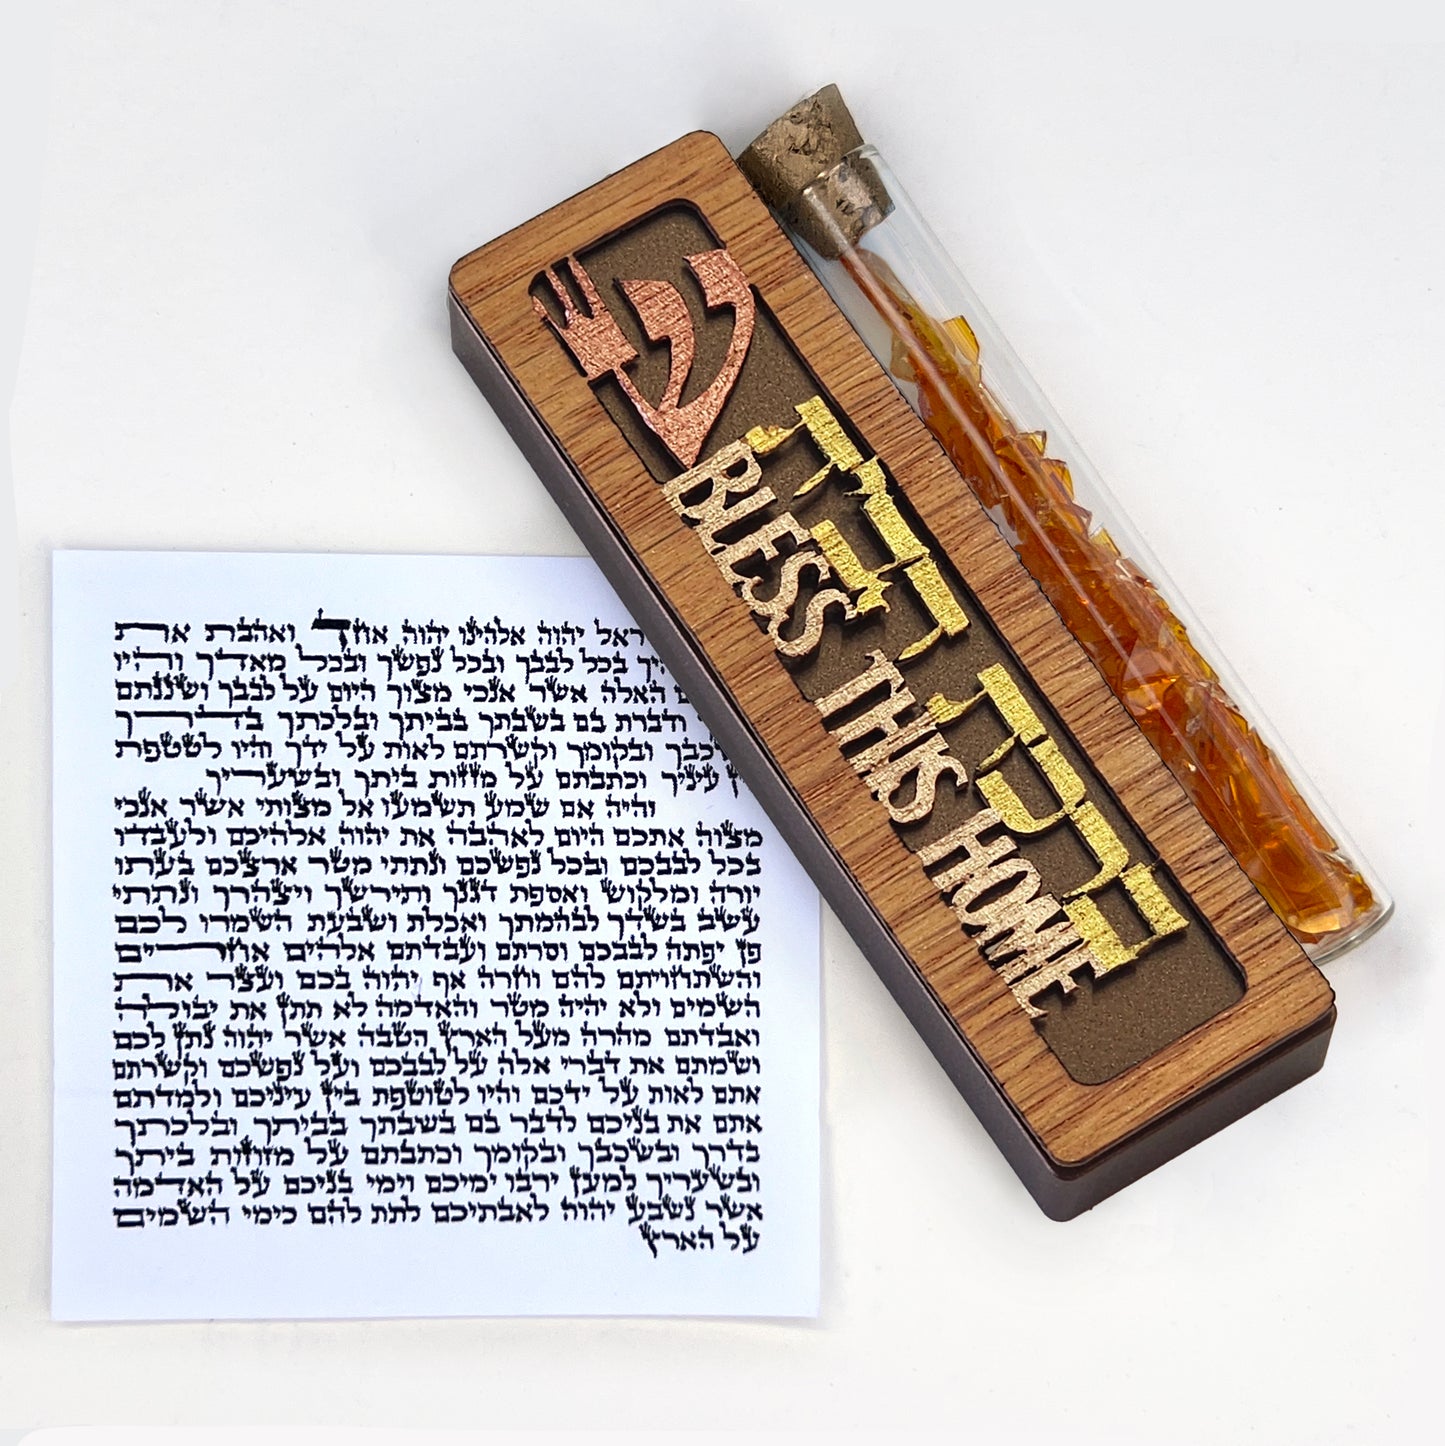 ש
ברכת הבית
BLESS THIS HOME
ראל יהוה אלהינו יהוה אחד ואהבת את
יך בכל לבבך ובכל נפשך ובכל מאדך והיו
האלה אשר אנכי מצוך היום על לבבך ושננתם
ודברת בם בשבתך בביתך ובלכתך בדרך
כבך ובקומך וקשרתם לאות על ידך והיו לטטפת
עיניך וכתבתם על מזזות ביתך ובשעריך
והיה אם שמע תשמעו אל מצותי אשר אנכי
מצוה אתכם היום לאהבה את יהוה אלהיכם ולעבדו
בכל לבבכם ובכל נפשכם ונתתי מטר ארצכם בעתו
יורה ומלקוש ואספת דגנך ותירשך ויצהרך ונתתי
עשב בשדך לבהמתך ואכלת ושבעת השמרו לכם
פן יפתה לבבכם וסרתם ועבדתם אלהים אחרים
והשתחויתם להם וחרה אף יהוה בכם ועצר את
השמים ולא יהיה מטר והאדמה לא תתן את יבולה
ואבדתם מהרה מעל הארץ הטבה אשר יהוה נתן לכם
ושמתם את דברי אלה על לבבכם ועל נפשכם וקשרתם
אתם לאות על ידכם והיו לטוטפת בין עיניכם ולמדתם
אתם את בניכם לדבר בם בשבתך בביתך ובלכתך
בדרך ובשכבך ובקומך וכתבתם על מזוזות ביתך
ובשעריך למען ירבו ימיכם וימי בניכם על האדמה
אשר נשבע יהוה לאבתיכם לתת להם כימי השמים
על הארץ